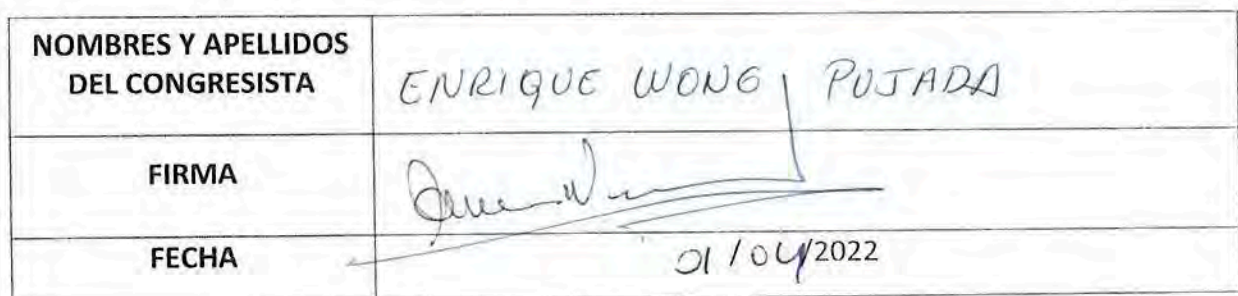 NOMBRES Y APELLIDOS
DEL CONGRESISTA
ENRIQUE WONG PUJADA
FIRMA
FECHA
01/04/2022